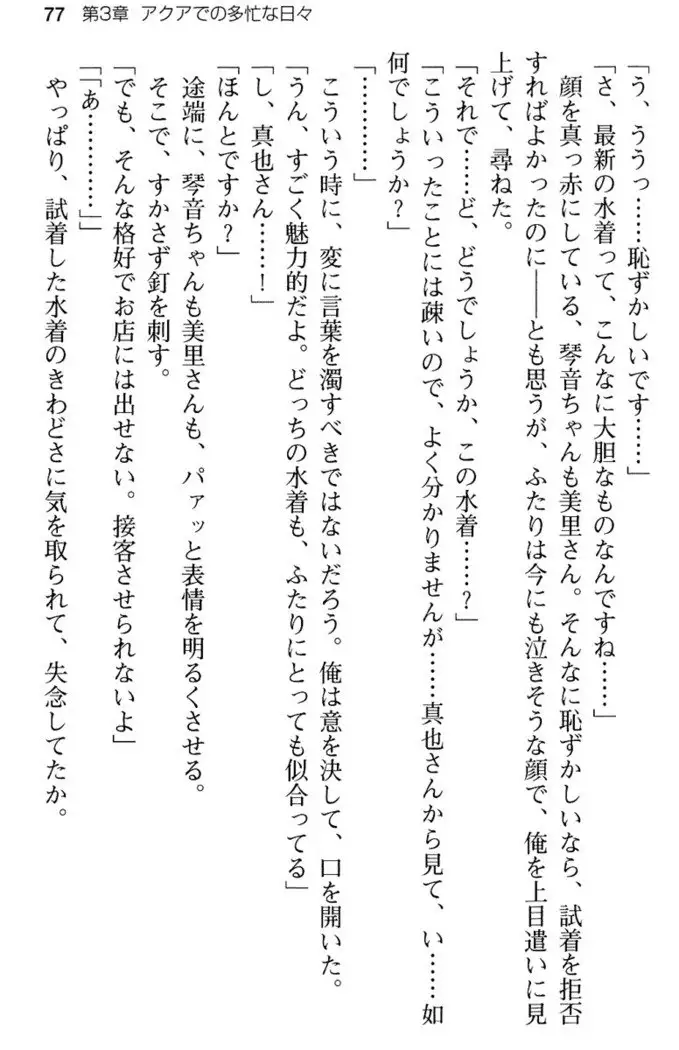 77 第3章 アクアでの多忙な日々
「う、ううっ……恥ずかしいです……」
「さ、最新の水着って、こんなに大胆なものなんですね……」
顔を真っ赤にしている、琴音ちゃんも美里さん。そんなに恥ずかしいなら、試着を拒否
すればよかったのに――とも思うが、ふたりは今にも泣きそうな顔で、俺を上目遣いに見
上げて、尋ねた。
「それで……ど、どうでしょうか、この水着……?」
「こういったことには疎いので、よく分かりませんが……真也さんから見て、い……如
何でしょうか?」
「…………」
こういう時に、変に言葉を濁すべきではないだろう。俺は意を決して、口を開いた。
「うん、すごく魅力的だよ。どっちの水着も、ふたりにとっても似合ってる」
「し、真也さん……!」
「ほんとですか?」
途端に、琴音ちゃんも美里さんも、パァッと表情を明るくさせる。
そこで、すかさず釘を刺す。
「でも、そんな格好でお店には出せない。接客させられないよ」
「「ぁ…………」」
やっぱり、試着した水着のきわどさに気を取られて、失念してたか。